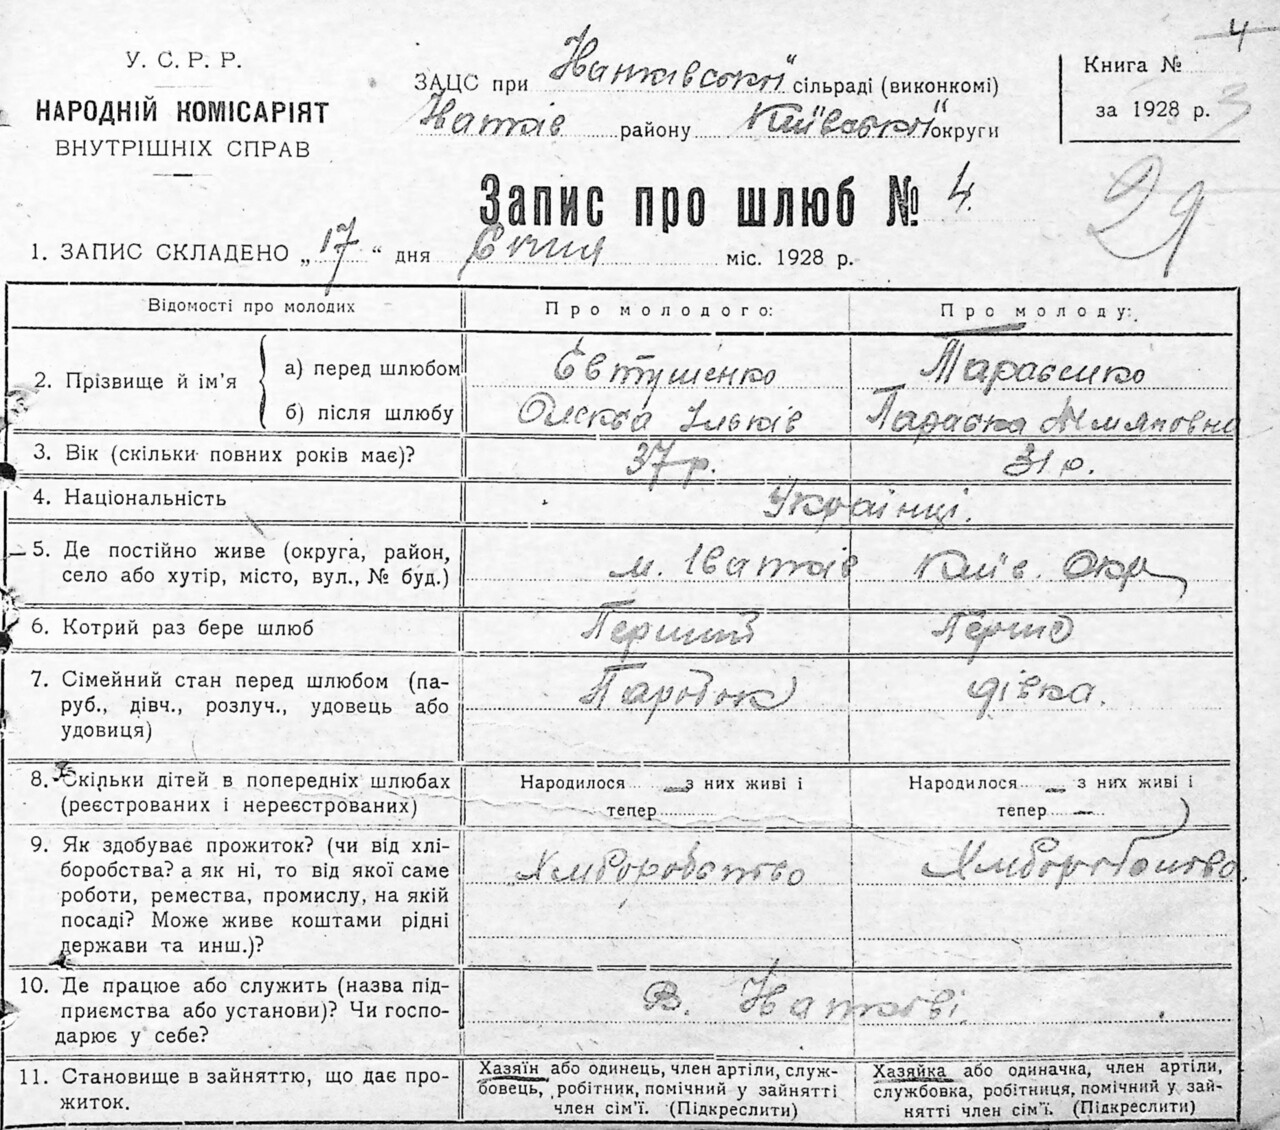 4
У. С. Р. Р.
НАРОДНІЙ КОМІСАРІЯТ
ВНУТРІШНІХ СПРАВ
ЗАЦС при сільраді (виконкомі)
району Київської округи
Книга №
за 1928 р. 3
Запис про шлюб № 4.
29
1. ЗАПИС СКЛАДЕНО „17“ дня Січня міс. 1928 р.
Відомості про молодих
Про молодого:
Про молоду:
2. Прізвище й ім'я
а) перед шлюбом
б) після шлюбу
Євтушенко
Олекса Ільків
Тарасенко
Параска
3. Вік (скільки повних років має)?
37 р.
31 р.
4. Національність
Українці.
5. Де постійно живе (округа, район,
село або хутір, місто, вул., № буд.)
м. Іванків Київ. Окр
6. Котрий раз бере шлюб
Перший
Перше
7. Сімейний стан перед шлюбом (па-
руб., дівч., розлуч., удовець або
удовиця)
Парубок
дівка.
8. Скільки дітей в попередніх шлюбах
(реєстрованих і нереєстрованих)
Народилося — з них живі і
тепер
Народилося — з них живі і
тепер —
9. Як здобуває прожиток? (чи від хлі-
боробства? а як ні, то від якої саме
роботи, ремества, промислу, на якій
посаді? Може живе коштами рідні
держави та инш.)?
Хліборобство
Хліборобство.
10. Де працює або служить (назва під-
приємства або установи)? Чи госпо-
дарює у себе?
В.
11. Становище в зайняттю, що дає про-
житок.
Хазяїн або одинець, член артіли, служ-
бовець, робітник, помічний у зайнятті
член сім'ї. (Підкреслити)
Хазяйка або одиначка, член артіли,
службовка, робітниця, помічний у зай-
нятті член сім'ї. (Підкреслити)